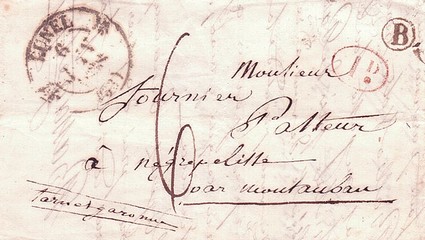 LUNEL
B
1D
6
Monsieur
Fournier
Pasteur
à négrepelisse
par montauban
Tarn et garonne